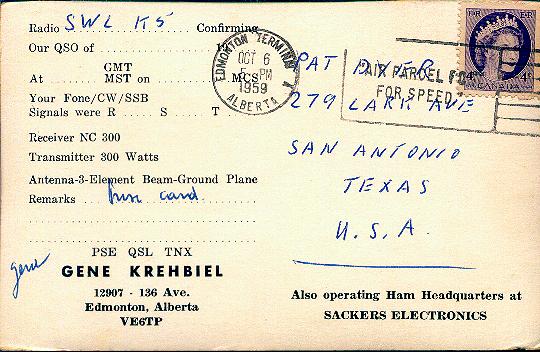 Radio SWL K5 Confirming
Our QSO of
GMT
At MST on MCS
Your Fone/CW/SSB
Signals were R S T
Receiver NC 300
Transmitter 300 Watts
Antenna-3-Element Beam-Ground Plane
Remarks fine card
PSE QSL TNX
gene
GENE KREHBIEL
12907 - 136 Ave.
Edmonton, Alberta
VE6TP
EDMONTON TERMINAL A
OCT 6
PM
1959
ALBERTA
AIR PARCEL
FOR SPEED
4¢ 4¢
CANADA
PAT DYER
279 LARK AVE
SAN ANTONIO
TEXAS
U.S.A.
Also operating Ham Headquarters at
SACKERS ELECTRONICS